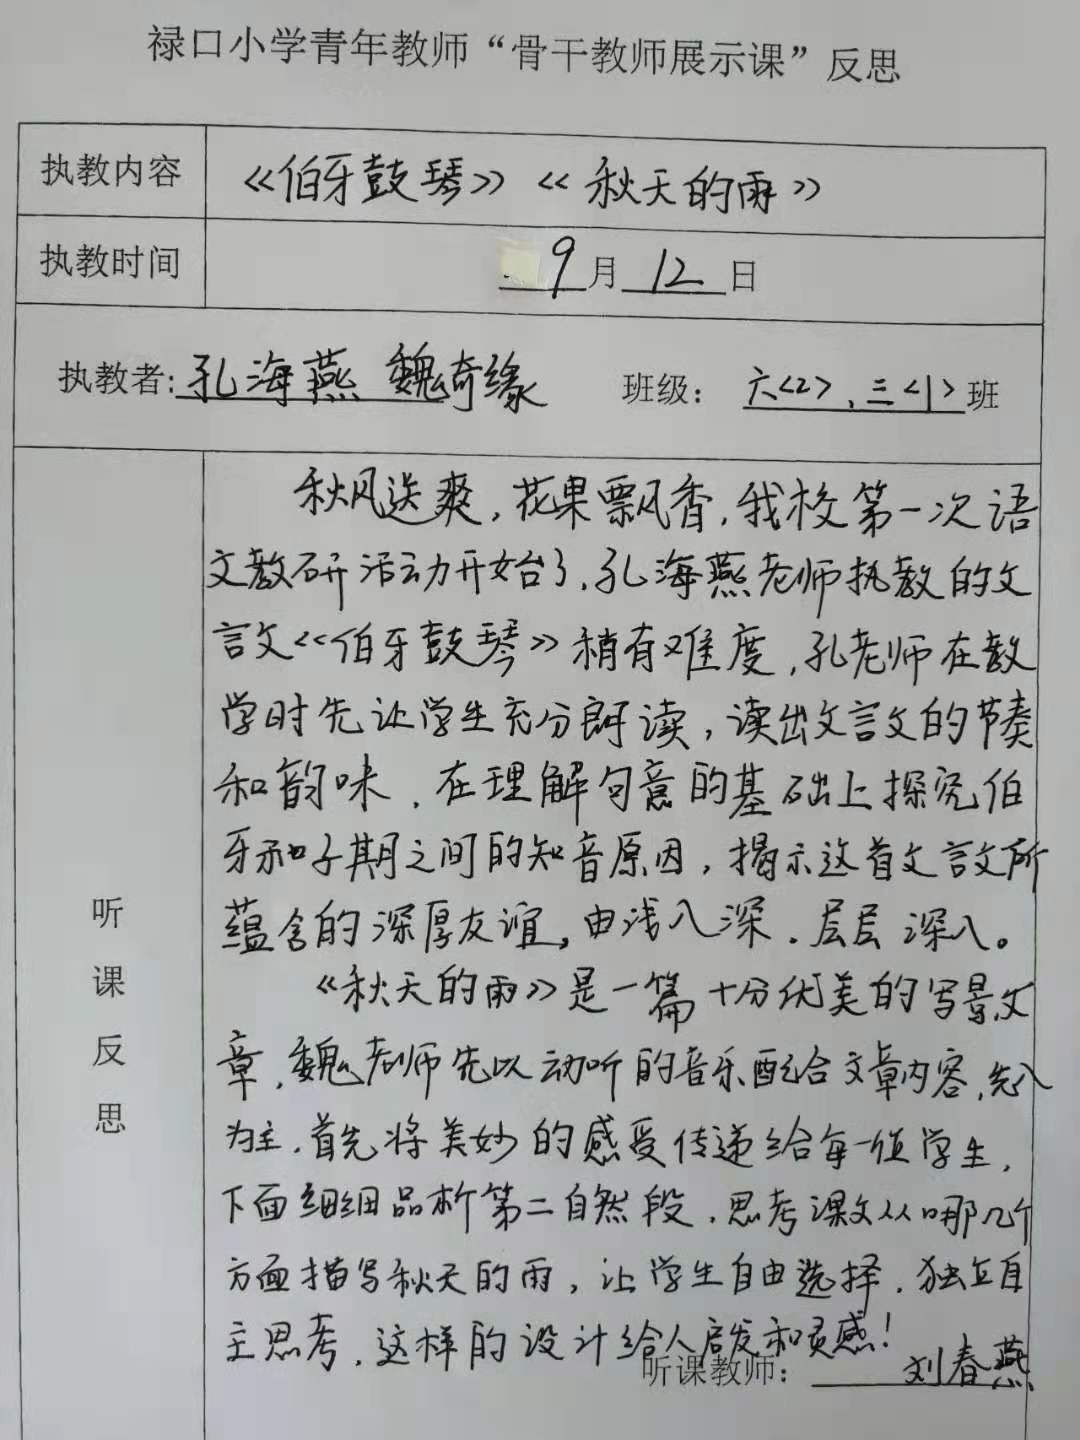 禄口小学青年教师“骨干教师展示课”反思
执教内容 《伯牙鼓琴》《秋天的雨》
执教时间 9月12日
执教者:孔海燕 魏奇缘 班级：六<2>、三<1>班
秋风送爽，花果飘香，我校第一次语
文教研活动开始了，孔海燕老师执教的文
言文《伯牙鼓琴》稍有难度，孔老师在教
学时先让学生充分朗读，读出文言文的节奏
和韵味，在理解句意的基础上探究伯
牙和子期之间的知音原因，揭示这首文言文所
蕴含的深厚友谊，由浅入深，层层深入。
《秋天的雨》是一篇十分优美的写景文
章，魏老师先以动听的音乐配合文章内容，先入
为主，首先将美妙的感受传递给每一位学生，
下面细细品析第二自然段，思考课文从哪几个
方面描写秋天的雨，让学生自由选择，独立自
主思考，这样的设计给人启发和灵感！
听课反思
听课教师：刘春燕